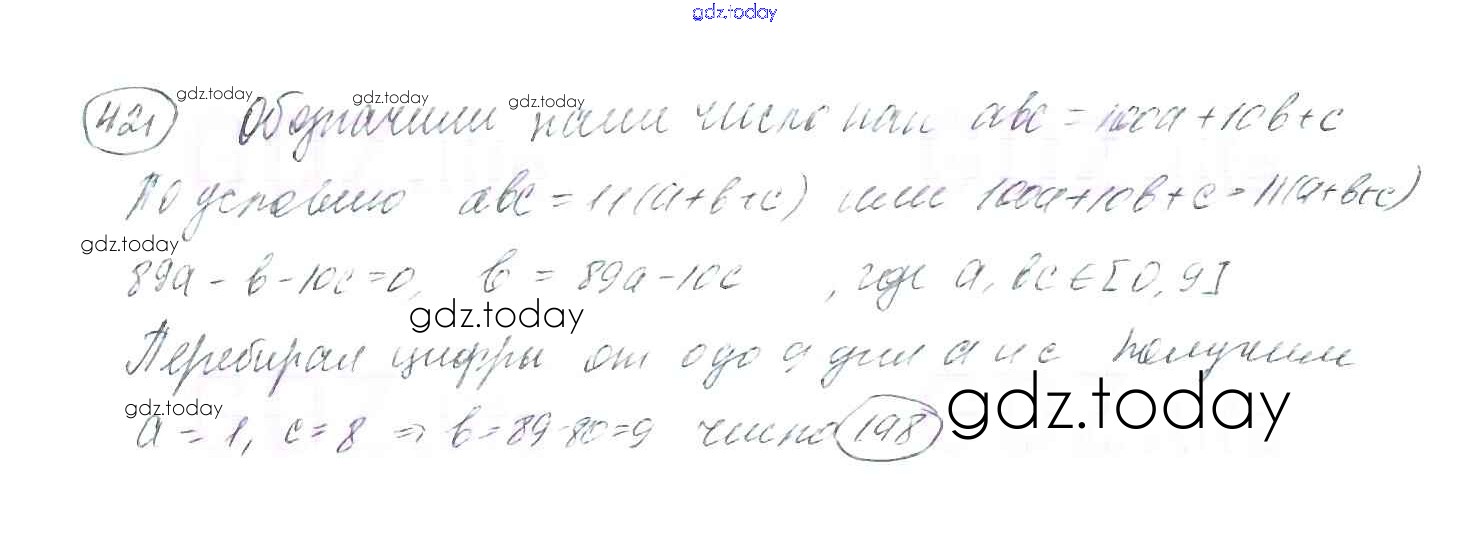 gdz.today
421 gdz.today Обозначим gdz.today наше gdz.today число как abc = 100a + 10b + c
По условию abc = 11(a+b+c) или 100a+10b+c = 11(a+b+c)
gdz.today
89a - b - 10c = 0, b = 89a - 10c , где a, bc ∈ [0, 9]
gdz.today
Перебирая цифры от 0 до 9 для a и c получим
gdz.today gdz.today
a = 1, c = 8 ⇒ b = 89-80=9 число 198